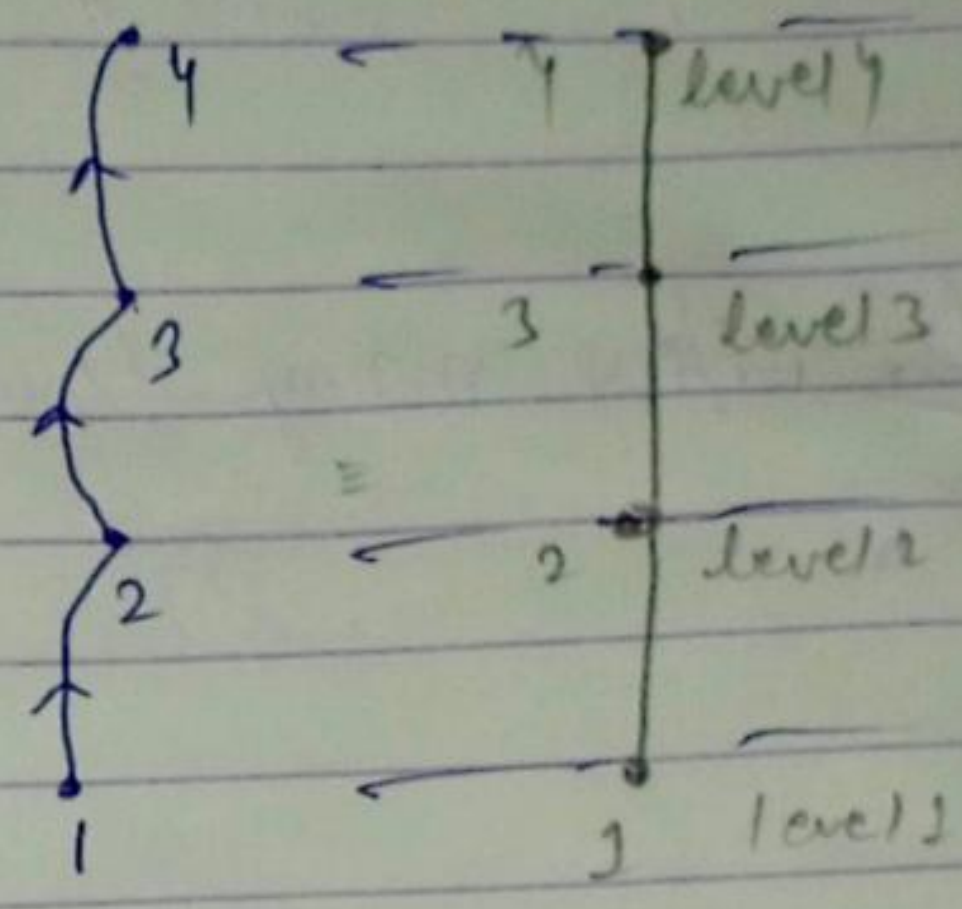 4 4 level 4
3 3 level 3
≡
2 2 level 2
1 1 level 1